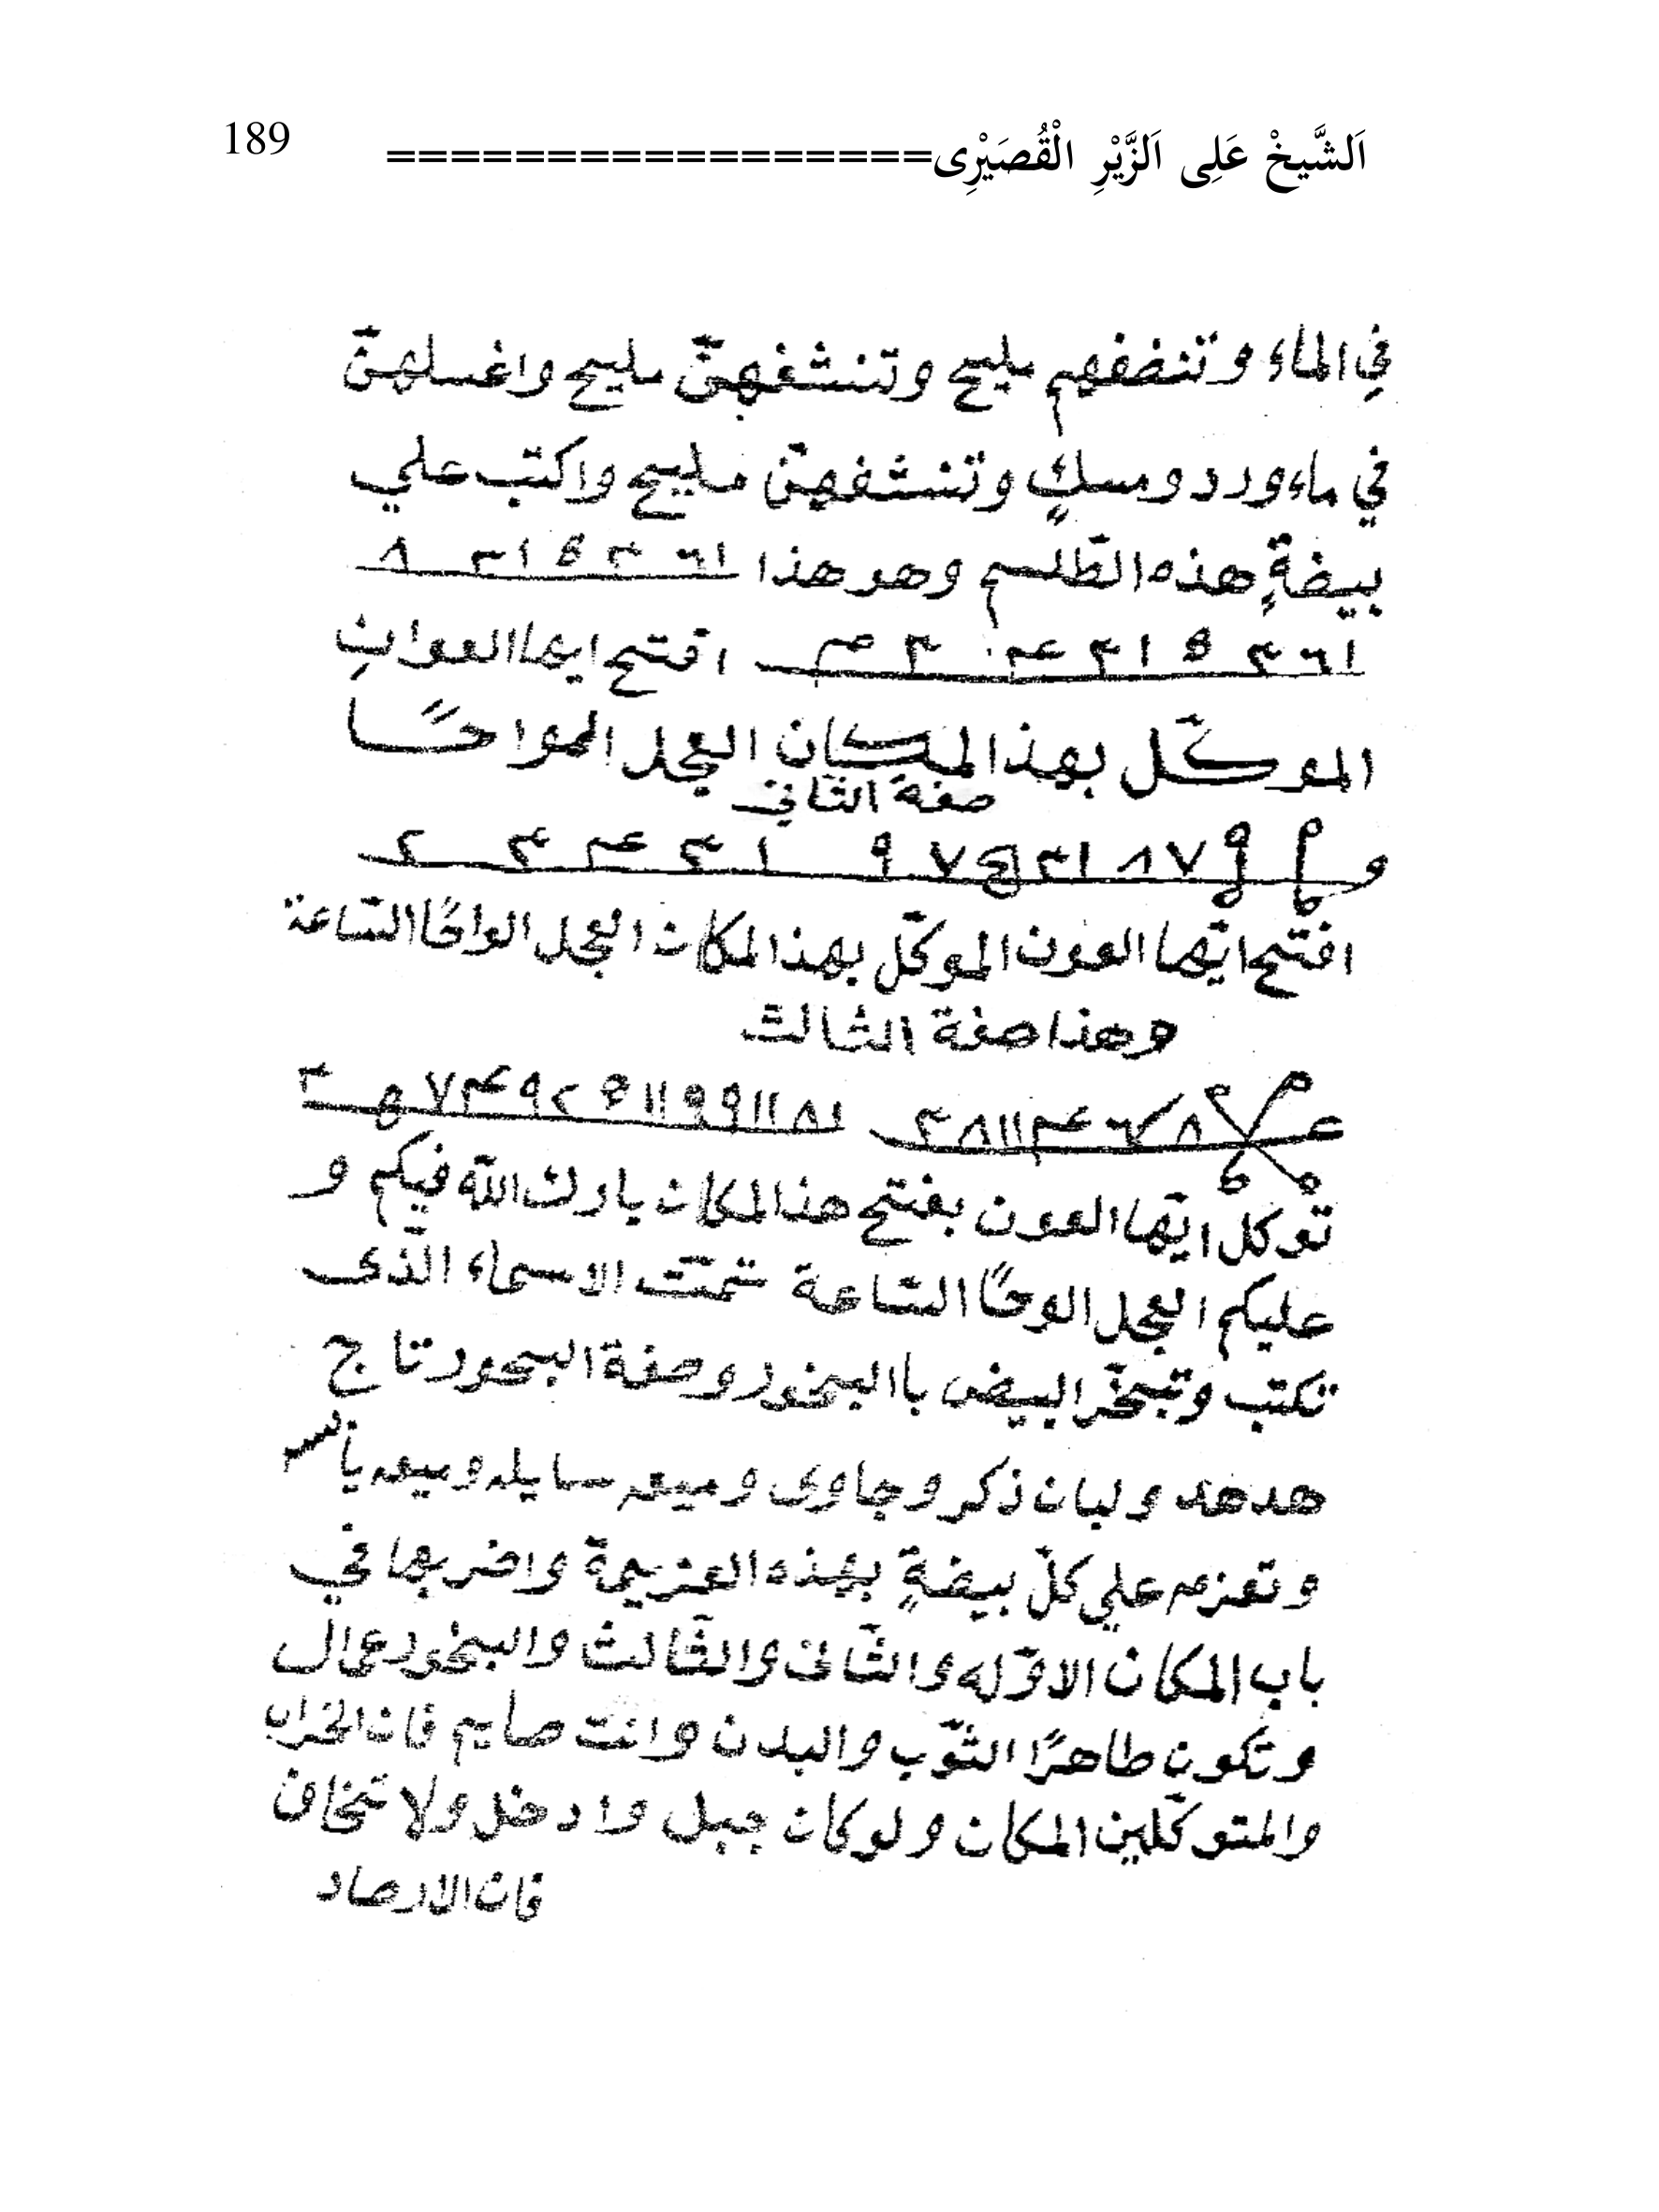 اَلشَّيخْ عَلِى اَلزَّيْرِ الْقُصَيْرِى================= 189
في الماء وتنضفهم مليح وتنشفهنّ مليح واغسلهنّ
في ماء ورد ومسكٍ وتنشفهنّ مليح واكتب علي
بيضةٍ هذه الطّلسم وهو هذا ١٦٣٥١٣٨
١٦٣٥١٣٣ افتتح ايها العوان
الموكّل بهذا المكان العجل الموحًا
صفة الثّاني
٨٧ ٧٩ ١٣
افتتح ايّها العون الموكّل بهذا المكان العجل الواحًا السّاعة
وهذا صفة الثالث
٨ ٨١١ ١٨١١٩٩١١٥٢٩ ٧
توكل ايّها العون بفتح هذا المكان بارك اللّه فيكم و
عليكم العجل الوحًا السّاعة تمّت الاسماء الّذى
تكتب وتبخّر البيض باالبخور وصفة البخور تاج
هدهد ولبان ذكر وجاوى وميعه سايله وميعه يابسه
وتعزم علي كلّ بيضةٍ بهذه العزيمة واضربها في
باب المكان الاوّله والثّانى والثّالث والبخور عمال
وتكون طاهرًا الثّوب والبدن وانت صايم فان
والمتوكّلين المكان ولو كان جبل وادخل ولا تخاف
فان الارصاد